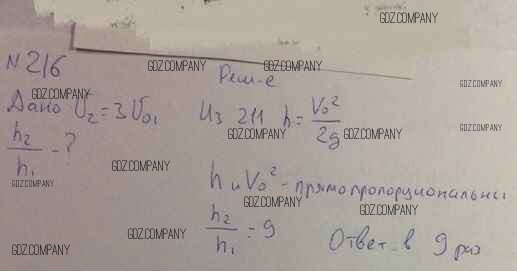 GDZ.COMPANY
N 216
GDZ.COMPANY GDZ.COMPANY
Реш-е
GDZ.COMPANY
GDZ.COMPANY
Дано U₂ = 3U₀₁ Из 211 h = V₀²/2g
GDZ.COMPANY GDZ.COMPANY GDZ.COMPANY
h₂/h₁ - ?
GDZ.COMPANY
GDZ.COMPANY
h и V₀² - прямопропорциональны
GDZ.COMPANY
GDZ.COMPANY
h₂/h₁ = 9
GDZ.COMPANY
Ответ. в 9 раз
GDZ.COMPANY